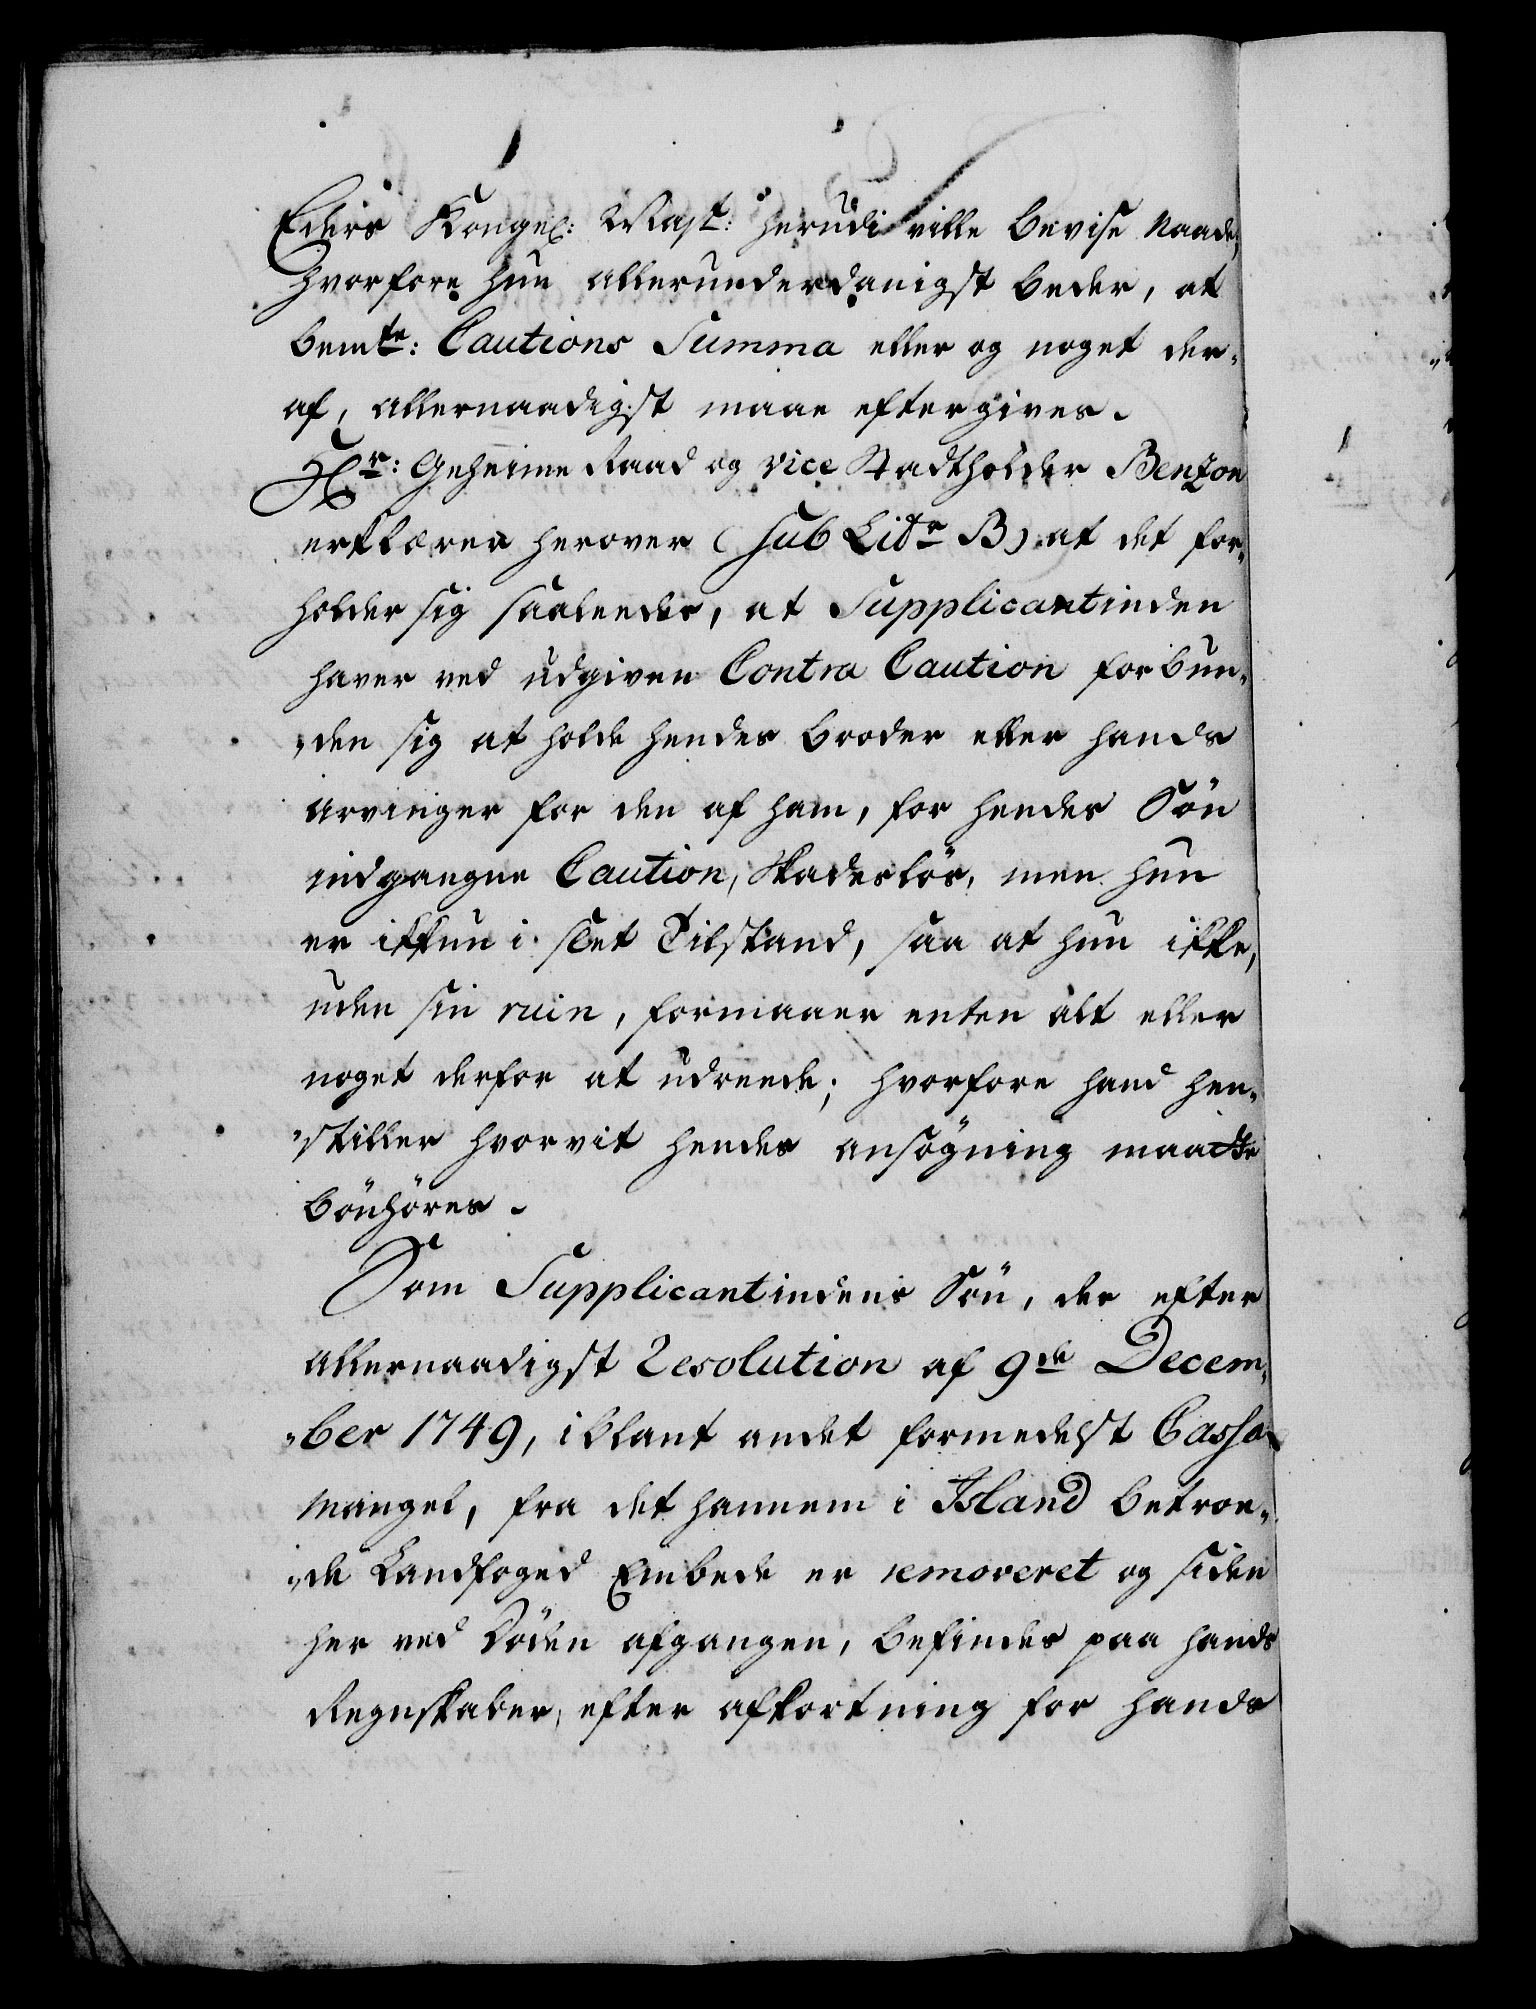 Eders Kongel: Mayt: herudi ville bevise Naade,
hvorfore hun allerunderdanigst beder, at
bemte: Cautions Summa eller og noget der-
af, allernaadigst maae eftergives.
Hr: Geheime Raad og vice Stadtholder Benzon
erklærer herover (sub Litr B) at det for-
holder sig saaledes, at Supplicantinden
haver ved udgiven Contra Caution forbun-
den sig at holde hendes broder eller hands
arvinger for den af ham, for hendes Sön
indgangne Caution, skadeslös, men hun
er ikkun i slet Tilstand, saa at hun ikke,
uden sin ruin, formaaer enten alt eller
noget derfor at udreede; hvorfore hand hen-
"stiller hvorvit hendes ansögning maatte
bönhöres.
Som Supplicantindens Sön, der efter
allernaadigst Resolution af 9de Decem-
"ber 1749, iblant andet formedelst Cassa
mangel, fra det hannem i Island betroe-
"de Landfoged Embede er removeret og siden
her ved Döden afgangen, befindes paa hands
Regnskaber, efter afkortning for hands